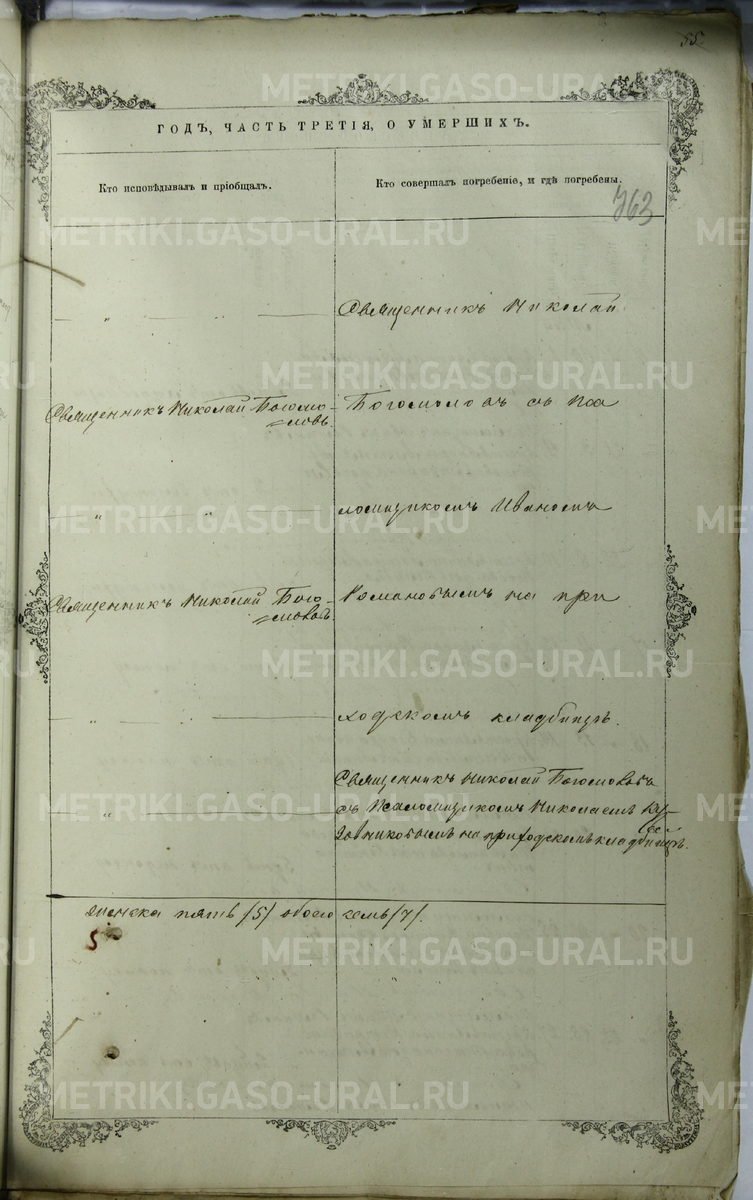 55.
ГОДЪ, ЧАСТЬ ТРЕТІЯ, О УМЕРШИХЪ.
Кто исповѣдывалъ и пріобщалъ.
Кто совершалъ погребеніе, и гдѣ погребены.
763
Священникъ Николай
Священникъ Николай Богомо-
=ловъ
Богомоловъ съ Пса
ломщикомъ Иваномъ
Священникъ Николай Бого-
=моловъ
Романовымъ на при
ходскомъ кладбищѣ.
Священникъ Николай Богомоловъ
съ Псаломщикомъ Николаемъ
на приходскомъ кладбищѣ.
женска пять /5/ обоего семь /7/.
5
METRIKI.GASO-URAL.RU